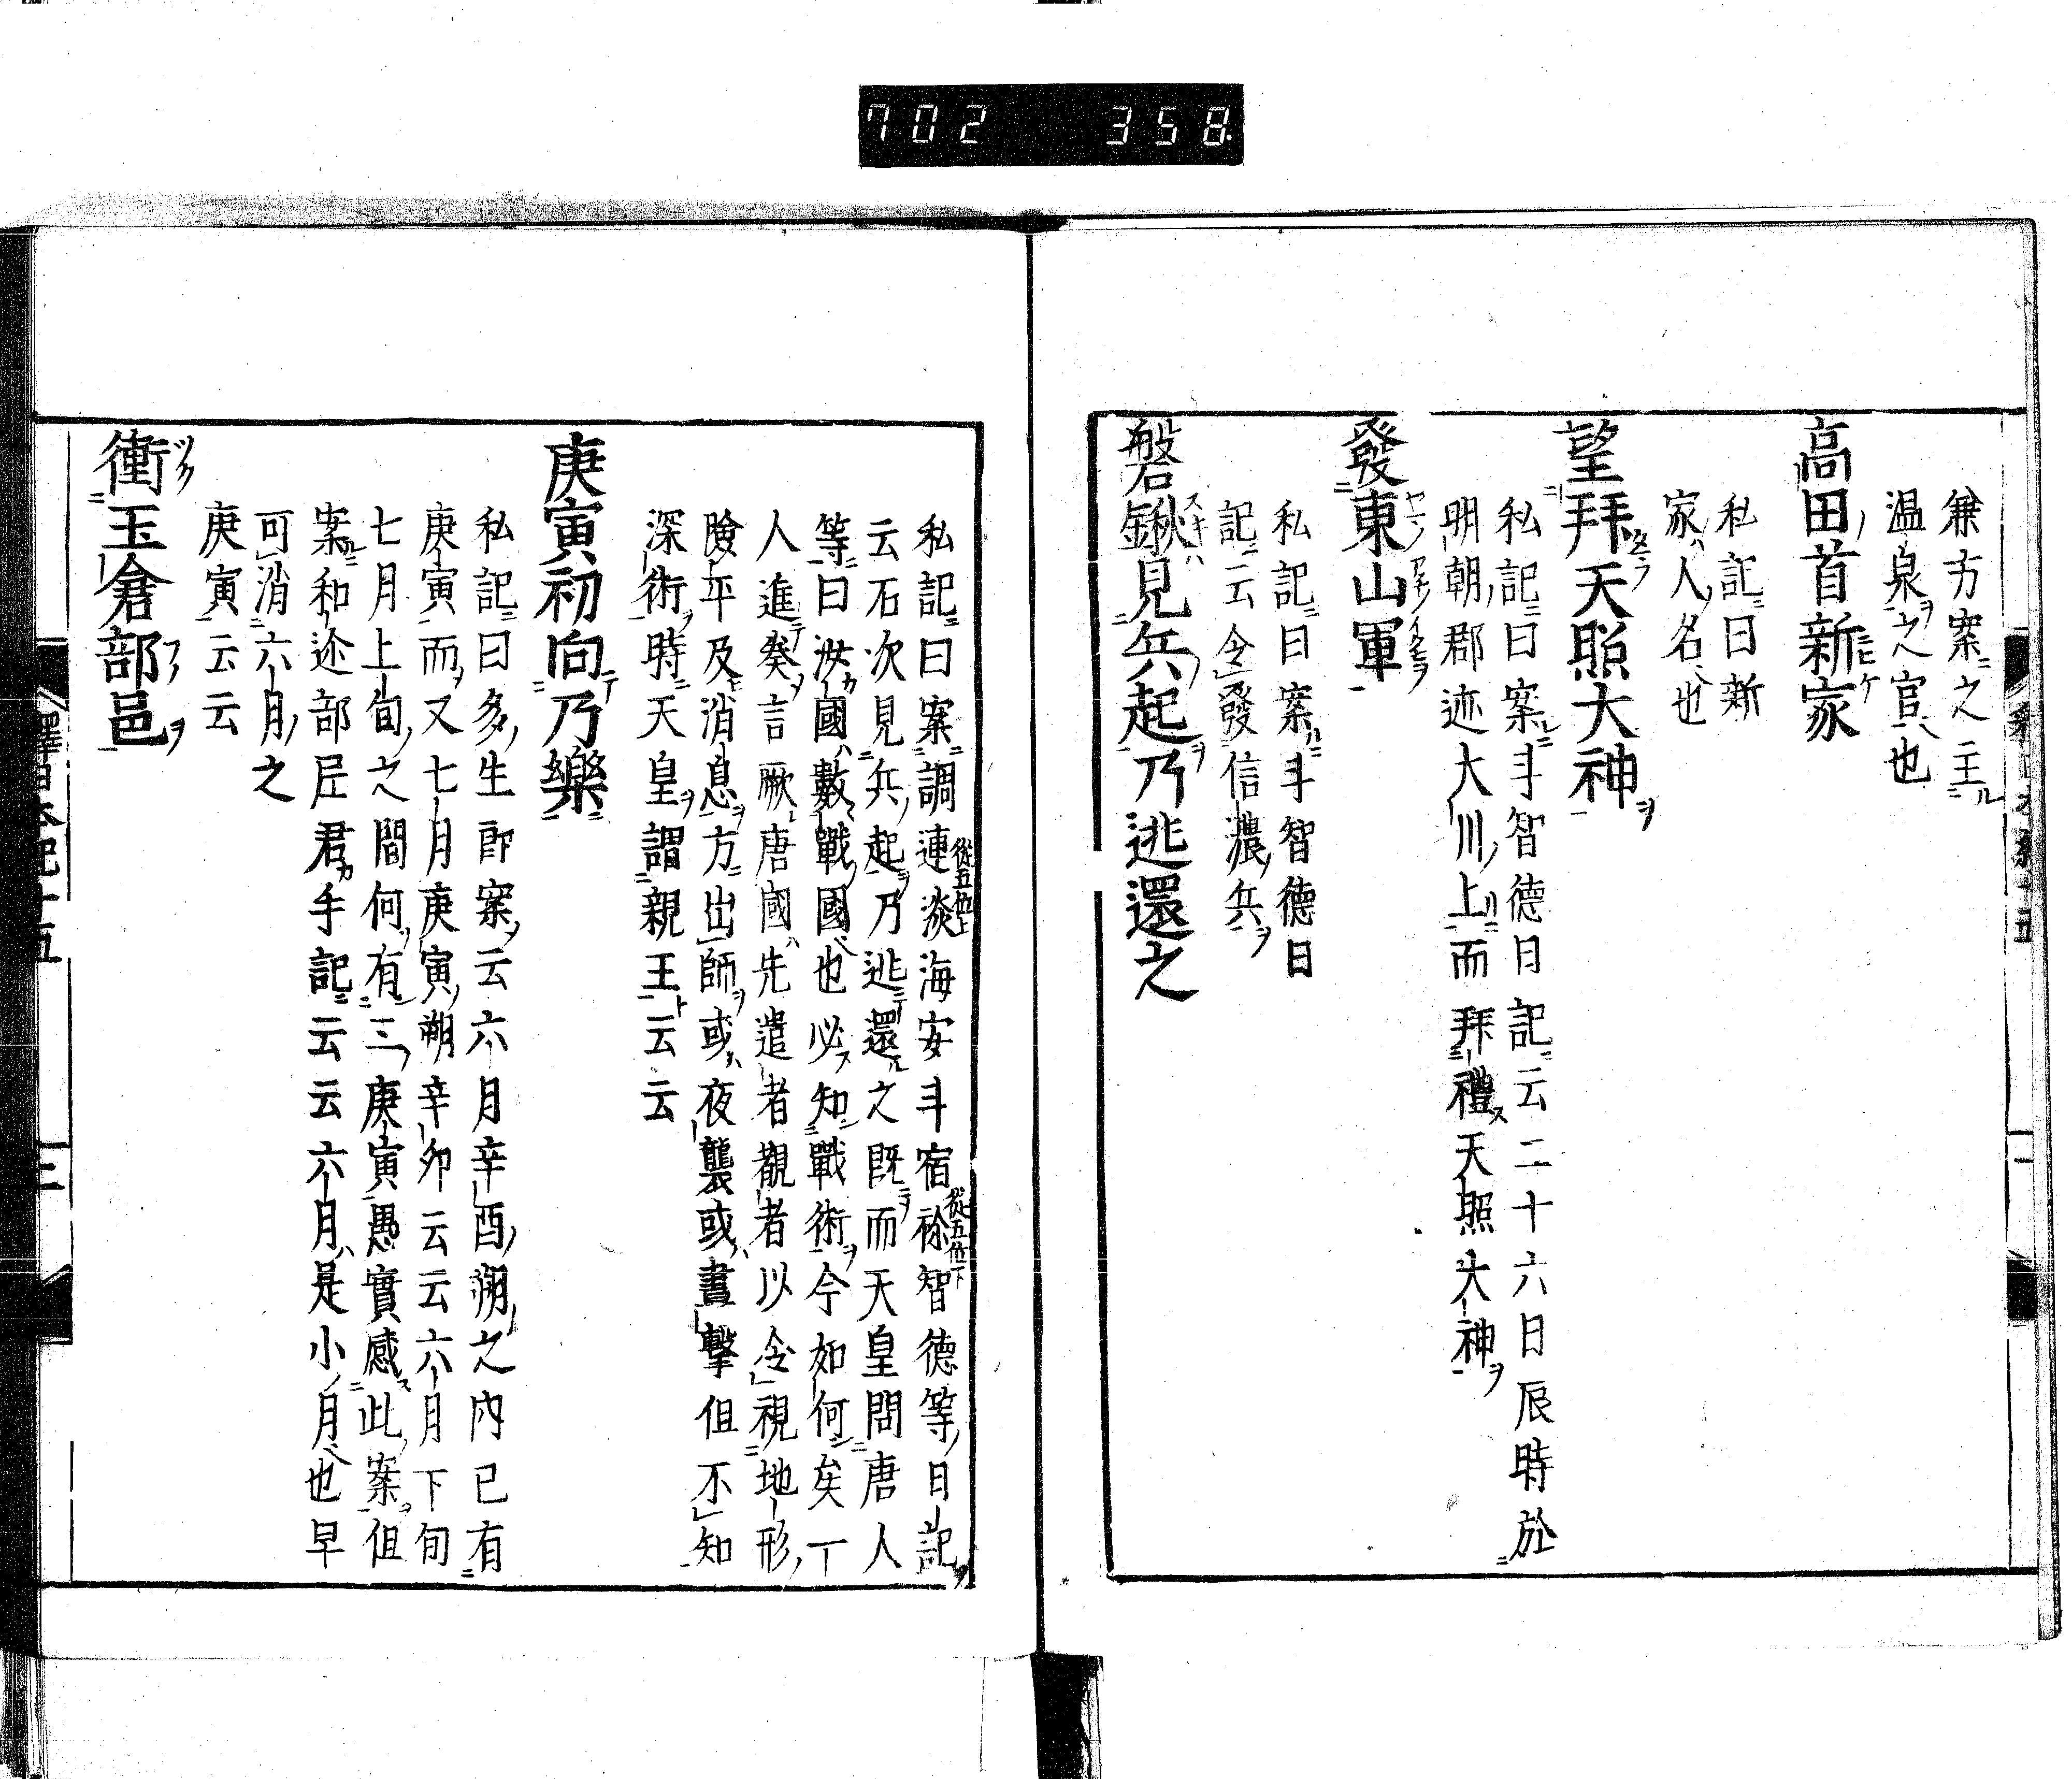 702 358
兼方案之主
温泉之官也
高田首新家
私記曰新
家人名也
望拜天照大神
私記曰案斗智德日記云二十六日辰時於
明朝郡迹大川上而拜禮天照大神
發東山軍
私記曰案斗智德日
記云令發信濃兵
磐鍬見兵起乃逃還之
私記曰案調連淡海安斗宿祢智德等日記
從五位上
從五位下
云石次見兵起乃逃還之既而天皇問唐人
等曰汝國數戰國也必知戰術今如何矣一
人進奏言厥唐國先遣者覩者以令視地形
險平及消息方出師或夜襲或晝擊但不知
深術時天皇謂親王云云
庚寅初向乃樂
私記曰多生卽案云六月辛酉朔之內已有
庚寅而又七月庚寅朔辛卯云云六月下旬
七月上旬之間何有三庚寅愚實惑此案但
案和迩部臣君手記云云六月是小月也早
可消六月之
庚寅云云
衝玉倉部邑
釋日本紀十五